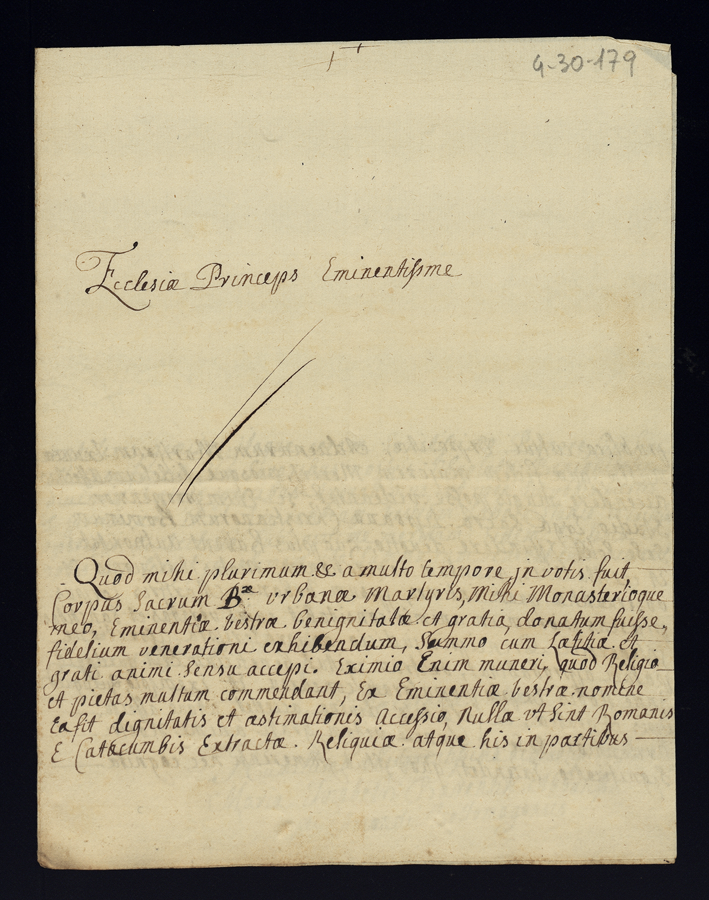 9-30-179
Ecclesiæ Princeps Eminentissme
Quod mihi plurimum & a multo tempore in votis fuit
Corpus Sacrum Bæ Urbanæ Martyris, Mihi Monasterioque
meo, Eminentiæ vestræ benignitate et gratia donatum fuisse,
fidelium venerationi exhibendum, Summo cum Lætitiæ et
grati animi Sensu accepi. Eximio Enim muneri, quod Religio
et pietas multum commendant, Ex Eminentiæ vestræ nomine
ea fit dignitatis et æstimationis Accessio, Nullæ vt Sint Romanis
E Catacumbis Extractæ Reliquiæ atque his in partibus